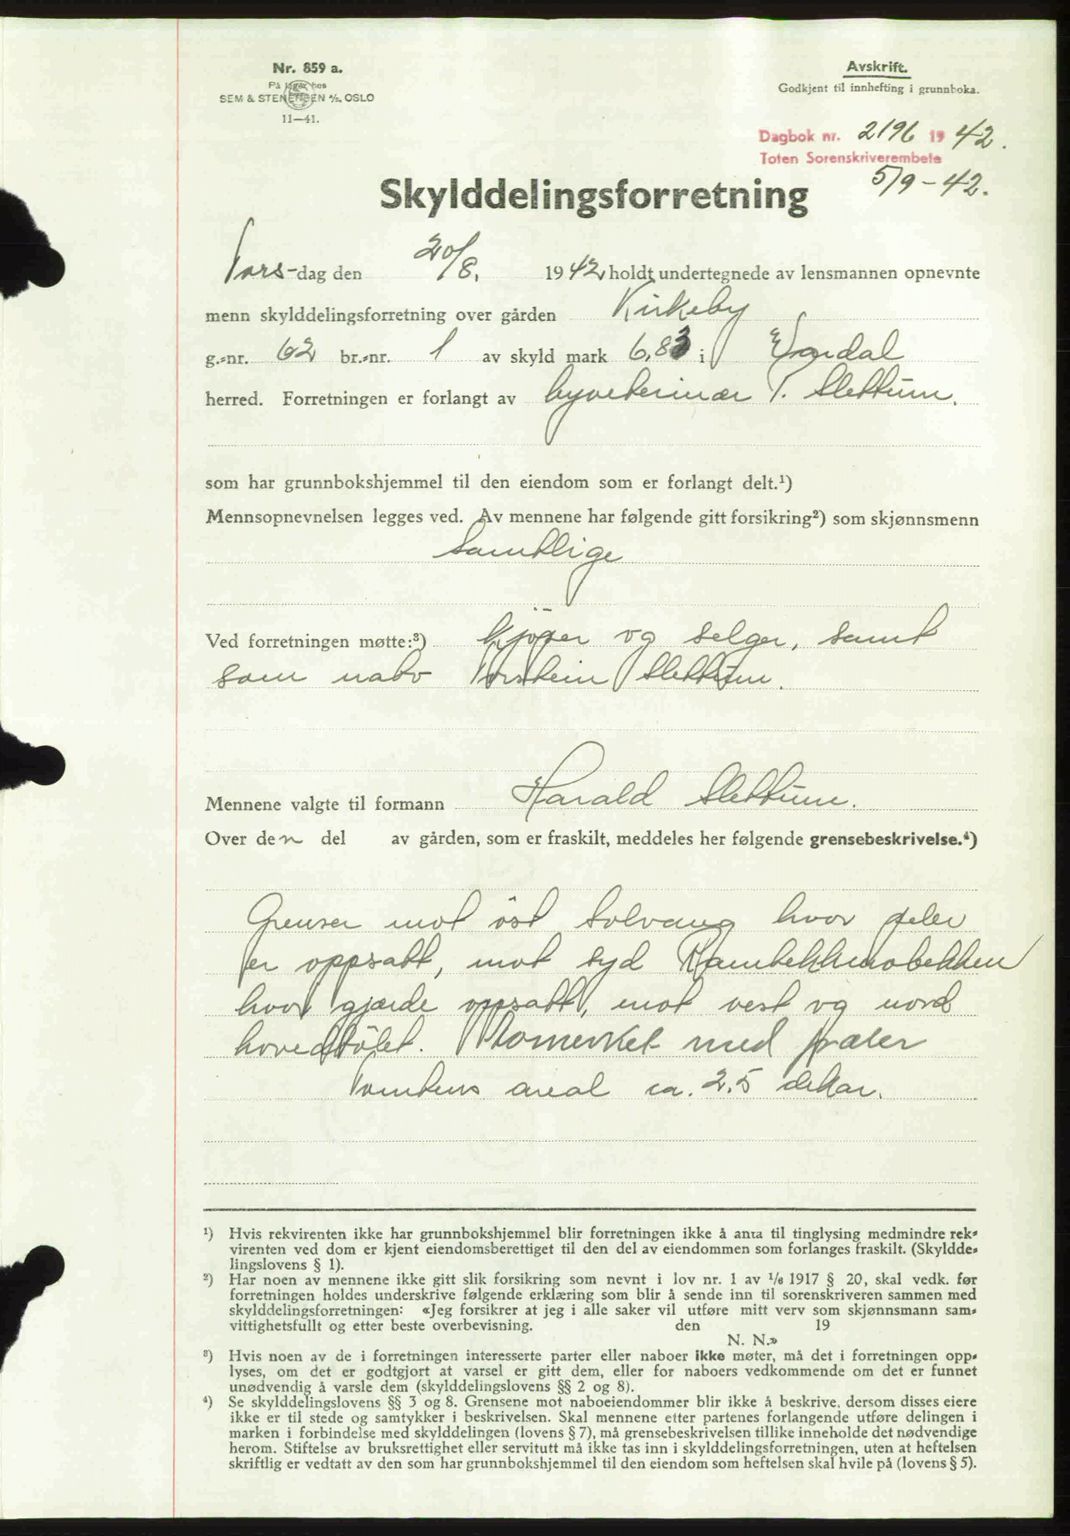 Nr. 859 a.
På lager hos
SEM & STENERSEN A/S, OSLO
11—41.
Avskrift.
Godkjent til innhefting i grunnboka.
Dagbok nr. 2196 1942.
Toten Sorenskriverembete
5/9-42.
Skylddelingsforretning
Tors-dag den 20/8. 1942 holdt undertegnede av lensmannen opnevnte
menn skylddelingsforretning over gården Kirkeby
g.-nr. 62 br.-nr. 1 av skyld mark 6,83 i Vardal
herred. Forretningen er forlangt av byveterinær T. Slettum.
som har grunnbokshjemmel til den eiendom som er forlangt delt.¹)
Mennsopnevnelsen legges ved. Av mennene har følgende gitt forsikring²) som skjønnsmenn
Samtlige
Ved forretningen møtte:³) Kjöper og selger, samt
som nabo Torstein Slettum.
Mennene valgte til formann Harald Slettum.
Over den del av gården, som er fraskilt, meddeles her følgende grensebeskrivelse.⁴)
Grenser mot öst Solvang hvor peler
er oppsatt, mot syd
hvor gjærde oppsatt, mot vest og nord
hovedbölet. med pæler
Tomtens areal ca. 2,5 dekar.
¹) Hvis rekvirenten ikke har grunnbokshjemmel blir forretningen ikke å anta til tinglysing medmindre rek-
virenten ved dom er kjent eiendomsberettiget til den del av eiendommen som forlanges fraskilt. (Skyldde-
lingslovens § 1).
²) Har noen av mennene ikke gitt slik forsikring som nevnt i lov nr. 1 av 1/6 1917 § 20, skal vedk. før
forretningen holdes underskrive følgende erklæring som blir å sende inn til sorenskriveren sammen med
skylddelingsforretningen: «Jeg forsikrer at jeg i alle saker vil utføre mitt verv som skjønnsmann sam-
vittighetsfullt og etter beste overbevisning. den 19
N. N.»
³) Hvis noen av de i forretningen interesserte parter eller naboer ikke møter, må det i forretningen opp-
lyses, om det er godtgjort at varsel er gitt dem, eller for naboers vedkommende om det er funnet
unødvendig å varsle dem (skylddelingslovens §§ 2 og 8).
⁴) Se skylddelingslovens §§ 3 og 8. Grensene mot naboeiendommer blir ikke å beskrive, dersom disses eiere
ikke er til stede og samtykker i beskrivelsen. Skal mennene etter partenes forlangende utføre delingen i
marken i forbindelse med skylddelingen (lovens § 7), må grensebeskrivelsen tillike inneholde det nødvendige
herom. Stiftelse av bruksrettighet eller servitutt må ikke tas inn i skylddelingsforretningen, uten at heftelsen
skriftlig er vedtatt av den som har grunnbokshjemmel til den eiendom som heftelsen skal hvile på (lovens § 5).